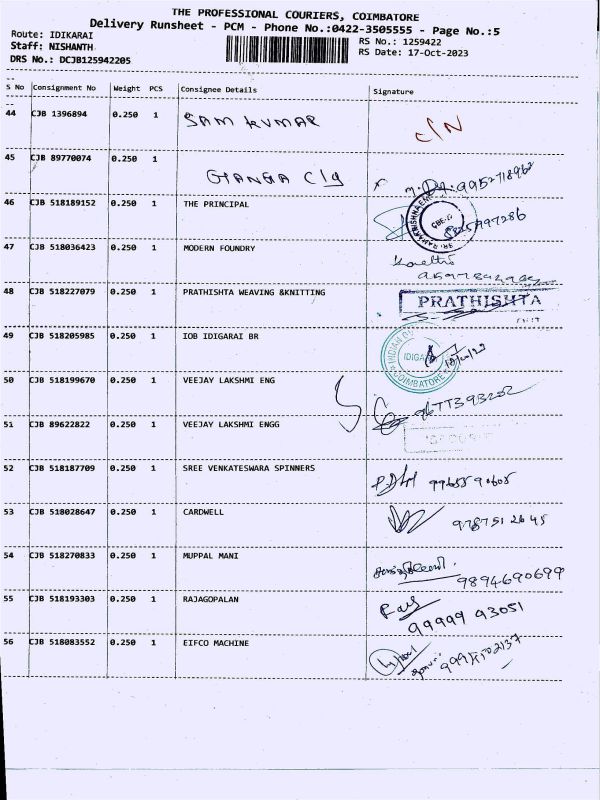 THE PROFESSIONAL COURIERS, COIMBATORE
Delivery Runsheet - PCM - Phone No.:0422-3505555 - Page No.:5
Route: IDIKARAI
RS No.: 1259422
Staff: NISHANTH
RS Date: 17-Oct-2023
DRS No.: DCJB125942205
S No Consignment No Weight PCS Consignee Details Signature
44 CJB 1396894 0.250 1 SAM KUMAR C/N
45 CJB 89770074 0.250 1 GANGA Clg
46 CJB 518189152 0.250 1 THE PRINCIPAL
47 CJB 518036423 0.250 1 MODERN FOUNDRY
48 CJB 518227079 0.250 1 PRATHISHTA WEAVING &KNITTING PRATHISHTA
49 CJB 518205985 0.250 1 IOB IDIGARAI BR COIMBATORE
50 CJB 518199670 0.250 1 VEEJAY LAKSHMI ENG
51 CJB 89622822 0.250 1 VEEJAY LAKSHMI ENGG
52 CJB 518187709 0.250 1 SREE VENKATESWARA SPINNERS
53 CJB 518028647 0.250 1 CARDWELL
54 CJB 518270833 0.250 1 MUPPAL MANI 9894690699
55 CJB 518193303 0.250 1 RAJAGOPALAN 99999 93051
56 CJB 518083552 0.250 1 EIFCO MACHINE